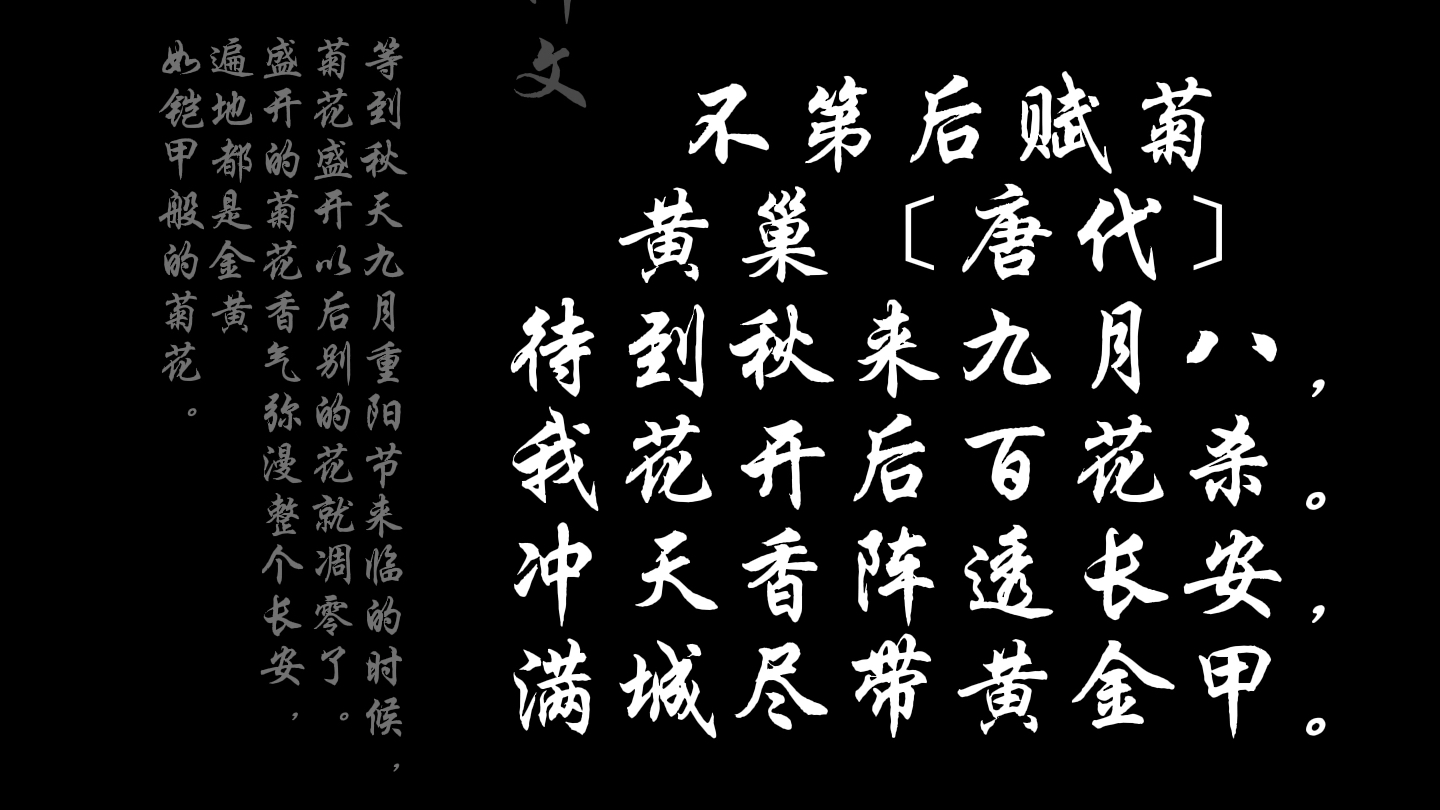 不第后赋菊
黄巢〔唐代〕
待到秋来九月八，
我花开后百花杀。
冲天香阵透长安，
满城尽带黄金甲。
文
等到秋天九月重阳节来临的时候，
菊花盛开以后别的花就凋零了。
盛开的菊花香气弥漫整个长安，
遍地都是金黄
如铠甲般的菊花。